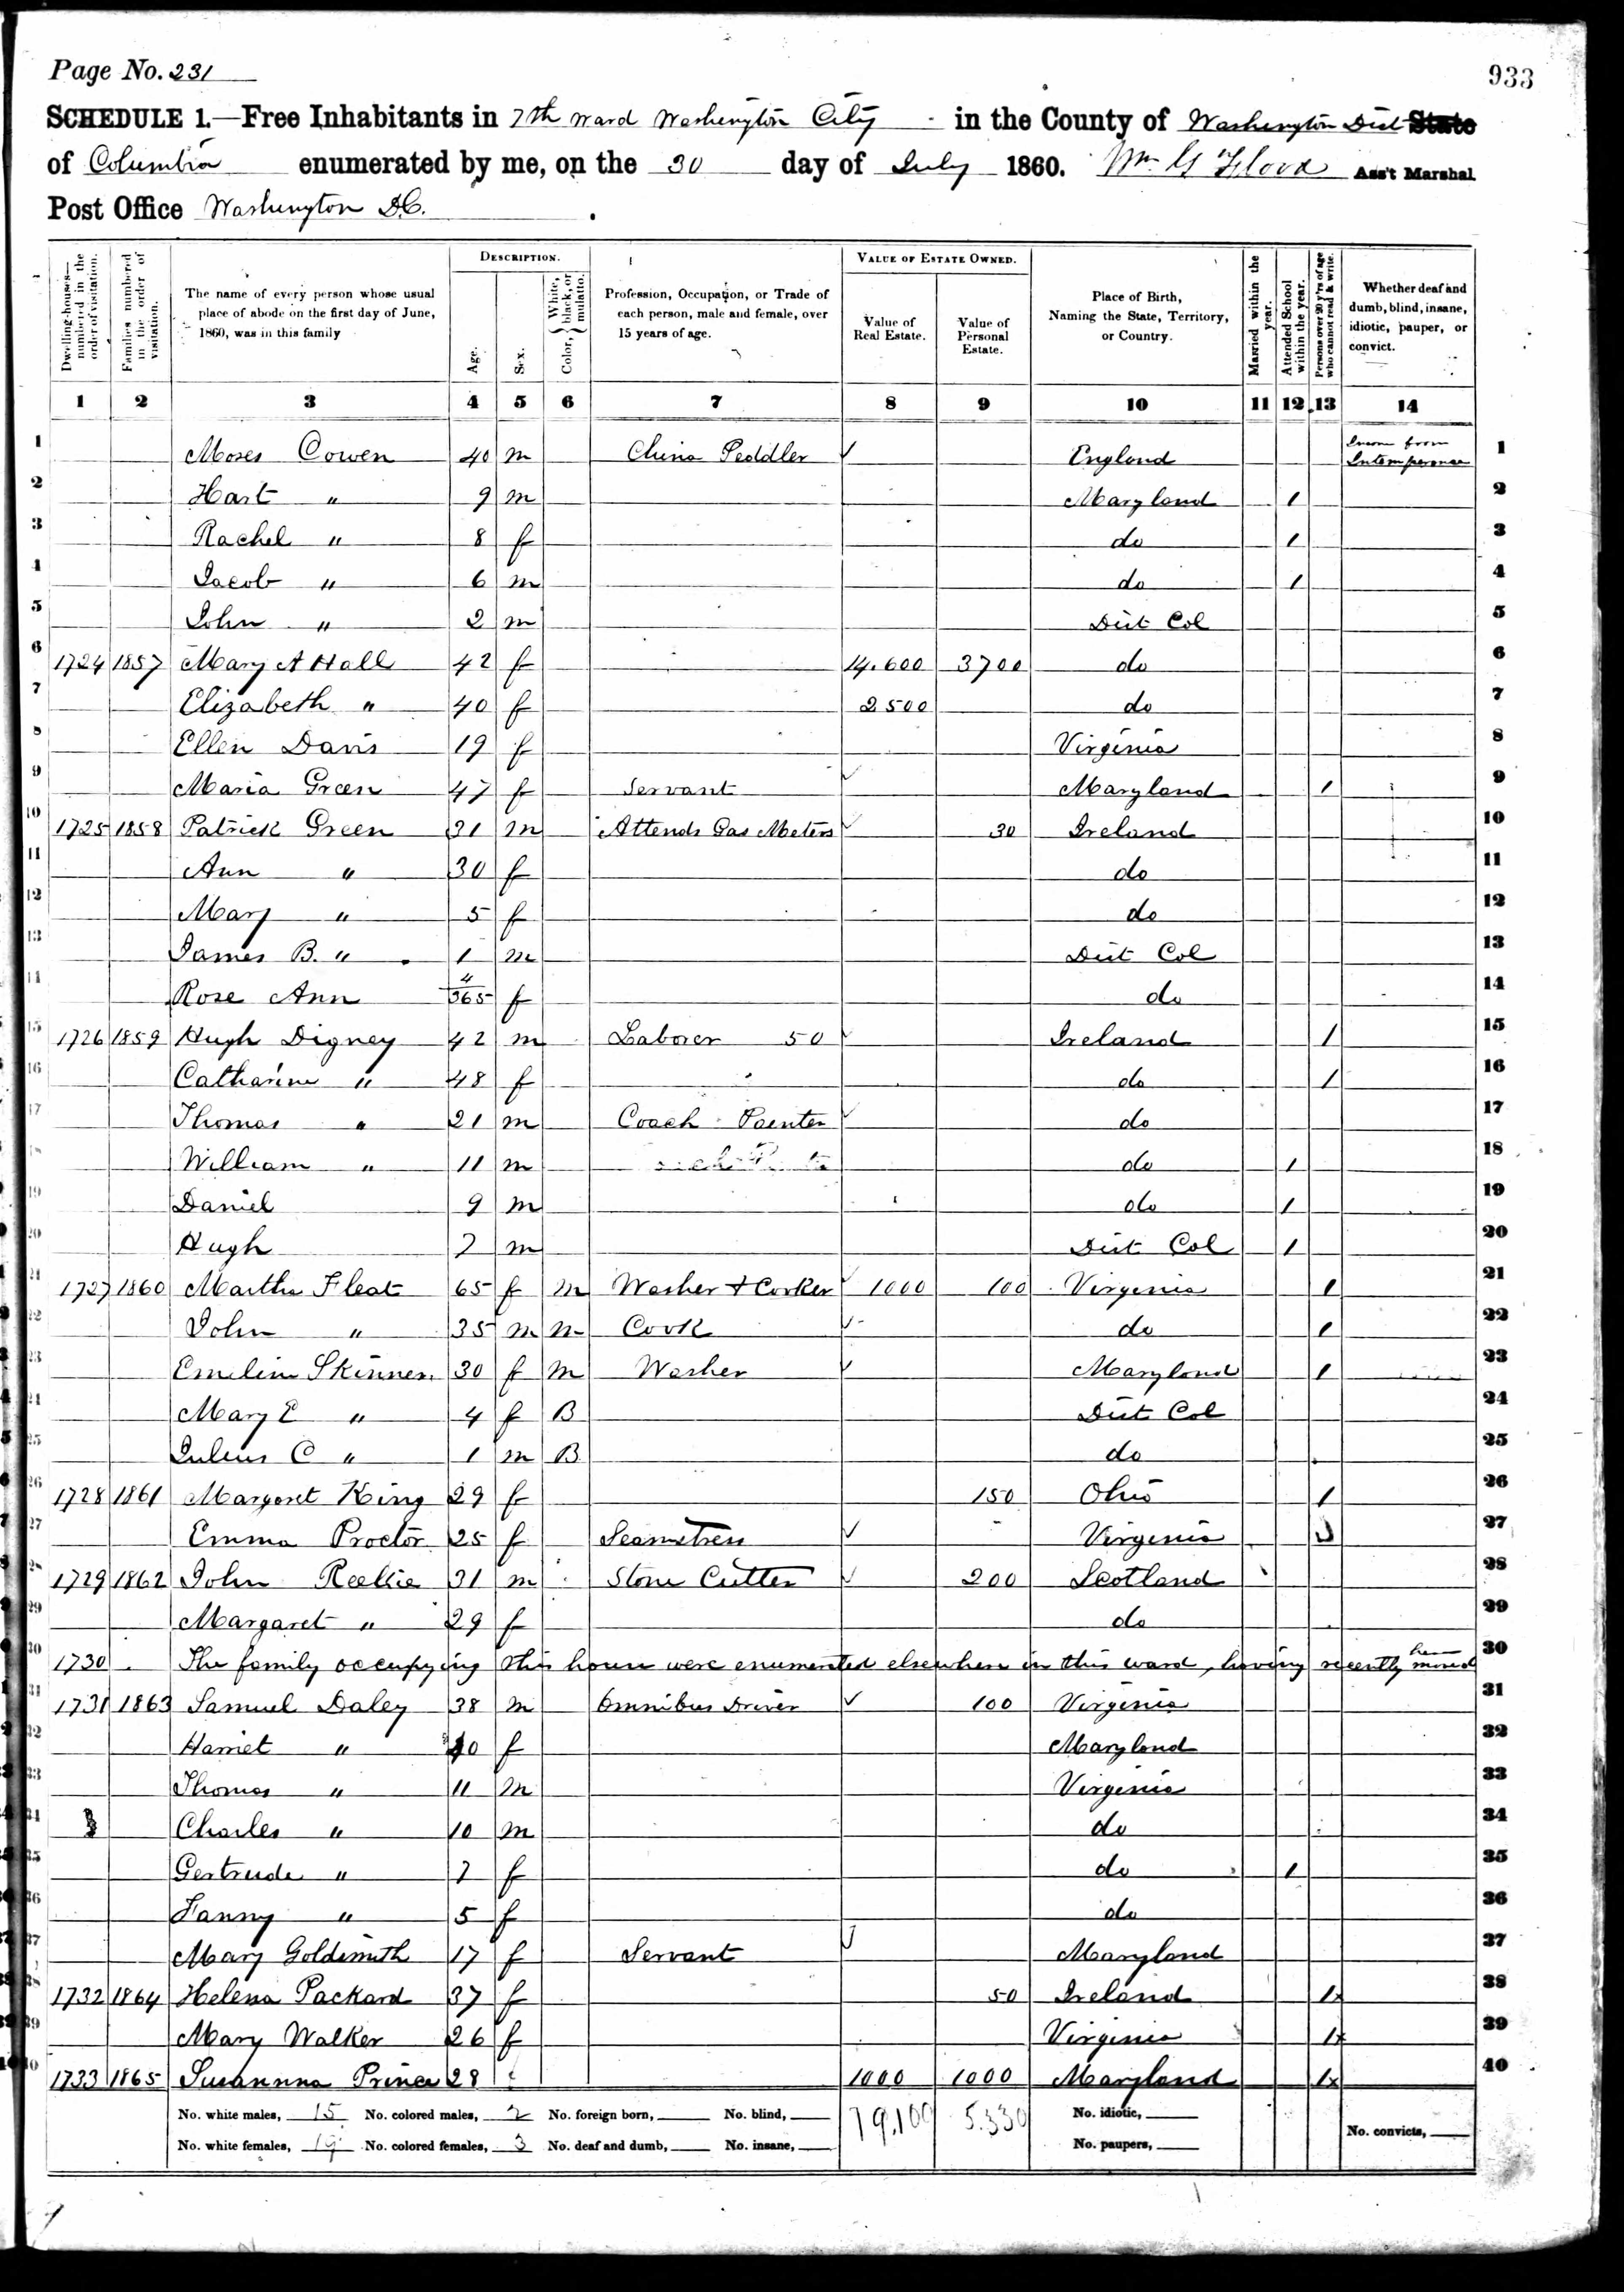 Page No. 231
933
SCHEDULE 1.—Free Inhabitants in 7th Ward Washington City in the County of Washington Dist State
of Columbia enumerated by me, on the 30 day of July 1860. Wm G Flood Ass't Marshal
Post Office Washington D.C.
DESCRIPTION. VALUE OF ESTATE OWNED.
Dwelling-houses—numbered in the order of visitation. Families numbered in the order of visitation. The name of every person whose usual place of abode on the first day of June, 1860, was in this family Age. Sex. Color, White, black, or mulatto. Profession, Occupation, or Trade of each person, male and female, over 15 years of age. Value of Real Estate. Value of Personal Estate. Place of Birth, Naming the State, Territory, or Country. Married within the year. Attended School within the year. Persons over 20 y'rs of age who cannot read & write. Whether deaf and dumb, blind, insane, idiotic, pauper, or convict.
1 2 3 4 5 6 7 8 9 10 11 12 13 14
1 Moses Cowen 40 m China Peddler England from Intemperance 1
2 Hart " 9 m Maryland 1 2
3 Rachel " 8 f do 1 3
4 Jacob " 6 m do 1 4
5 John " 2 m Dist Col 5
6 1724 1857 Mary A Hall 42 f 14.600 3700 do 6
7 Elizabeth " 40 f 2500 do 7
8 Ellen Davis 19 f Virginia 8
9 Maria Green 47 f Servant Maryland 1 9
10 1725 1858 Patrick Green 31 m Attends Gas Meters 30 Ireland 10
11 Ann " 30 f do 11
12 Mary " 5 f do 12
13 James B. " 1 m Dist Col 13
14 Rose Ann 4/365 f do 14
15 1726 1859 Hugh Digney 42 m Laborer 50 Ireland 1 15
16 Catharine " 48 f do 1 16
17 Thomas " 21 m Coach Painter do 17
18 William " 11 m do 1 18
19 Daniel 9 m do 1 19
20 Hugh 7 m Dist Col 1 20
21 1727 1860 Martha Fleat 65 f m Washer & Cooker 1000 100 Virginia 1 21
22 John " 35 m m Cook do 1 22
23 Emeline Skinner 30 f m Washer Maryland 1 23
24 Mary E " 4 f B Dist Col 24
25 Julius C " 1 m B do 25
26 1728 1861 Margaret King 29 f 150 Ohio 1 26
27 Emma Proctor 25 f Seamstress Virginia 27
28 1729 1862 John Reekie 31 m Stone Cutter 200 Scotland 28
29 Margaret " 29 f do 29
30 1730 The family occupying this house were enumerated elsewhere in this ward, having recently moved here 30
31 1731 1863 Samuel Daley 38 m Omnibus Driver 100 Virginia 31
32 Harriet " 40 f Maryland 32
33 Thomas " 11 m Virginia 33
34 Charles " 10 m do 34
35 Gertrude " 7 f do 1 35
36 Fanny " 5 f do 36
37 Mary Goldsmith 17 f Servant Maryland 37
38 1732 1864 Helena Packard 37 f 50 Ireland 1x 38
39 Mary Walker 26 f Virginia 1x 39
40 1733 1865 Susannna Prince 28 1000 1000 Maryland 1x 40
No. white males, 15 No. colored males, 2 No. foreign born, No. blind, 19,100 5.330 No. idiotic,
No. white females, 19 No. colored females, 3 No. deaf and dumb, No. insane, No. paupers, No. convicts,